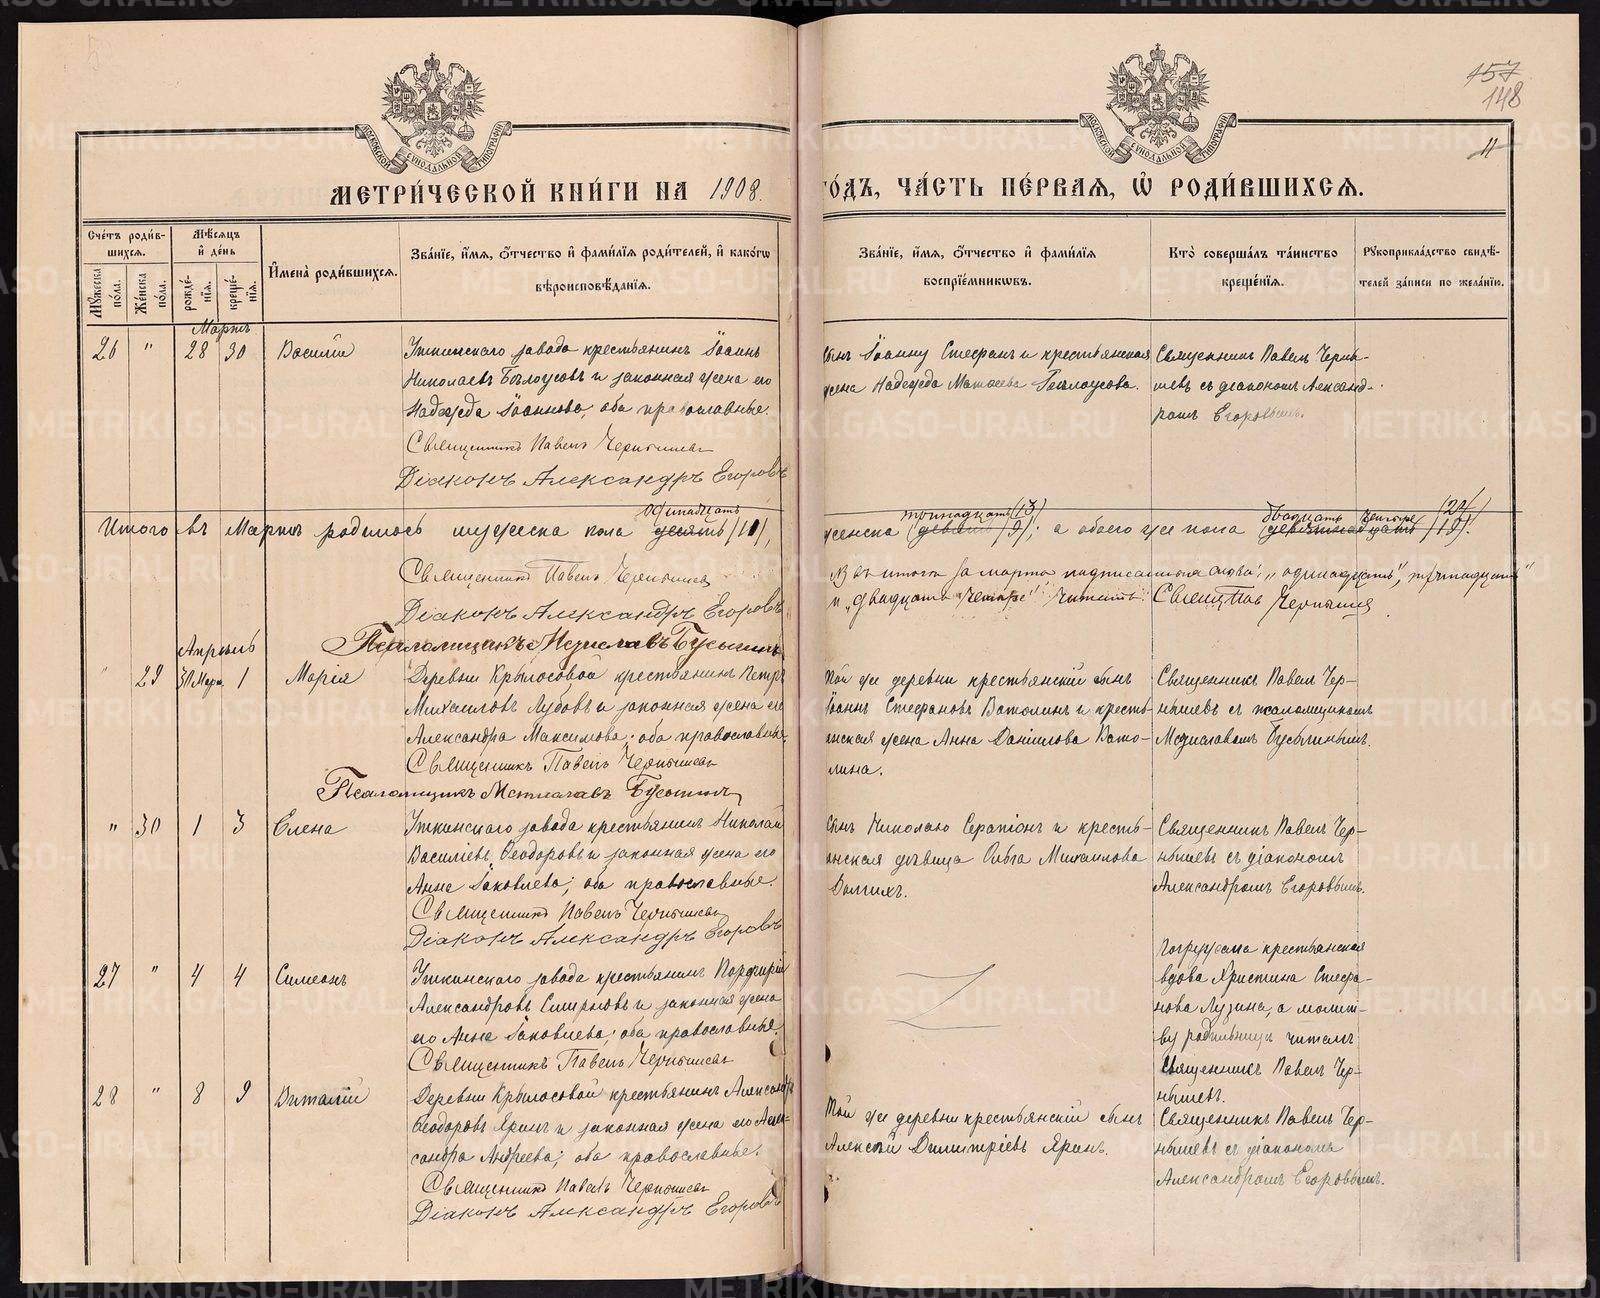 157
148
11
МОСКОВСКОЙ СѴНОДАЛЬНОЙ ТИПОГРАФІИ
МОСКОВСКОЙ СѴНОДАЛЬНОЙ ТИПОГРАФІИ
МЕТРИ́ЧЕСКОЙ КНИ́ГИ НА 1908
ГО́ДЪ, ЧА́СТЬ ПЕ́РВАЯ, Ѡ҆ РОДИ́ВШИХСѦ.
Сче́тъ роди́в-
шихсѧ.
Мꙋ́жеска по́ла.
Же́нска по́ла.
Мѣ́сѧцъ и҆ де́нь
рожде́-
нїѧ.
креще́-
нїѧ.
И҆мена̀ роди́вшихсѧ.
Зва́нїе, и҆́мѧ, ѻ҆́тчество и҆ фами́лїѧ роди́телей, и҆ како́гѡ
вѣроисповѣ́данїѧ.
Зва́нїе, и҆́мѧ, ѻ҆́тчество и҆ фами́лїѧ
воспрїе́мникѡвъ.
Кто̀ соверша́лъ та́инство
креще́нїѧ.
Рꙋкоприкла́дство свидѣ́-
телей за́писи по жела́нїю.
Мартъ
26 " 28 30 Василій
Уткинскаго завода крестьянинъ Іоаннъ
Николаевъ Бѣлоусовъ и законная жена его
Надежда Іоаннова, оба православные.
Священникъ Павелъ Чернышевъ
Діаконъ Александръ Егоровъ
сынъ Іоанну Стефанъ и крестьянская
жена Надежда Матѳеева Бѣлоусова.
Священникъ Павелъ Черны-
шевъ съ діакономъ Александ-
ромъ Егоровымъ.
Итого въ Мартѣ родилось мужеска пола одинадцать десять (11),
женска тринадцать (13) девять (9); а обоего же пола двадцать четыре (24) девятнадцать (19).
въ итогѣ за мартъ надписанныя слова: "одинадцать", "тринадцать"
и "двадцать четыре" читать. Священ. Пав. Чернышевъ
Священникъ Павелъ Чернышевъ
Діаконъ Александръ Егоровъ
Псаломщикъ Мстиславъ Бусыгинъ
Апрѣль
" 29 31 Март. 1 Марія
Деревни Крылосовой крестьянинъ Петръ
Михаиловъ Лубовъ и законная жена его
Александра Максимова, оба православные.
Священникъ Павелъ Чернышевъ
Псаломщикъ Мстиславъ Бусыгинъ
той же деревни крестьянскій сынъ
Іоаннъ Стефановъ Ватолинъ и кресть-
янская жена Анна Даніилова Вато-
лина.
Священникъ Павелъ Чер-
нышевъ съ псаломщикомъ
Мстиславомъ Бусыгинымъ.
" 30 1 3 Елена
Уткинскаго завода крестьянинъ Николай
Василіевъ Ѳеодоровъ и законная жена его
Анна Іаковлева; оба православные.
Священникъ Павелъ Чернышевъ
Діаконъ Александръ Егоровъ
сынъ Николаю Серапіонъ и кресть-
янская дѣвица Ольга Михаилова
Долгихъ.
Священникъ Павелъ Чер-
нышевъ съ діакономъ
Александромъ Егоровымъ.
27 " 4 4 Симеонъ
Уткинскаго завода крестьянинъ Порфирій
Александровъ Смирновъ и законная жена
его Анна Іаковлева; оба православные.
Священникъ Павелъ Чернышевъ
Погружала крестьянская
вдова Христина Стефа-
нова Лузина, а молит-
ву родильницѣ читалъ
Священникъ Павелъ Чер-
нышевъ.
28 " 8 9 Виталій
Деревни Крылосовой крестьянинъ Александръ
Ѳеодоровъ Яринъ и законная жена его Алек-
сандра Андреева; оба православные.
Священникъ Павелъ Чернышевъ
Діаконъ Александръ Егоровъ
той же деревни крестьянскій сынъ
Алексѣй Димитріевъ Яринъ.
Священникъ Павелъ Чер-
нышевъ съ діакономъ
Александромъ Егоровымъ.
METRIKI.GASO-URAL.RU